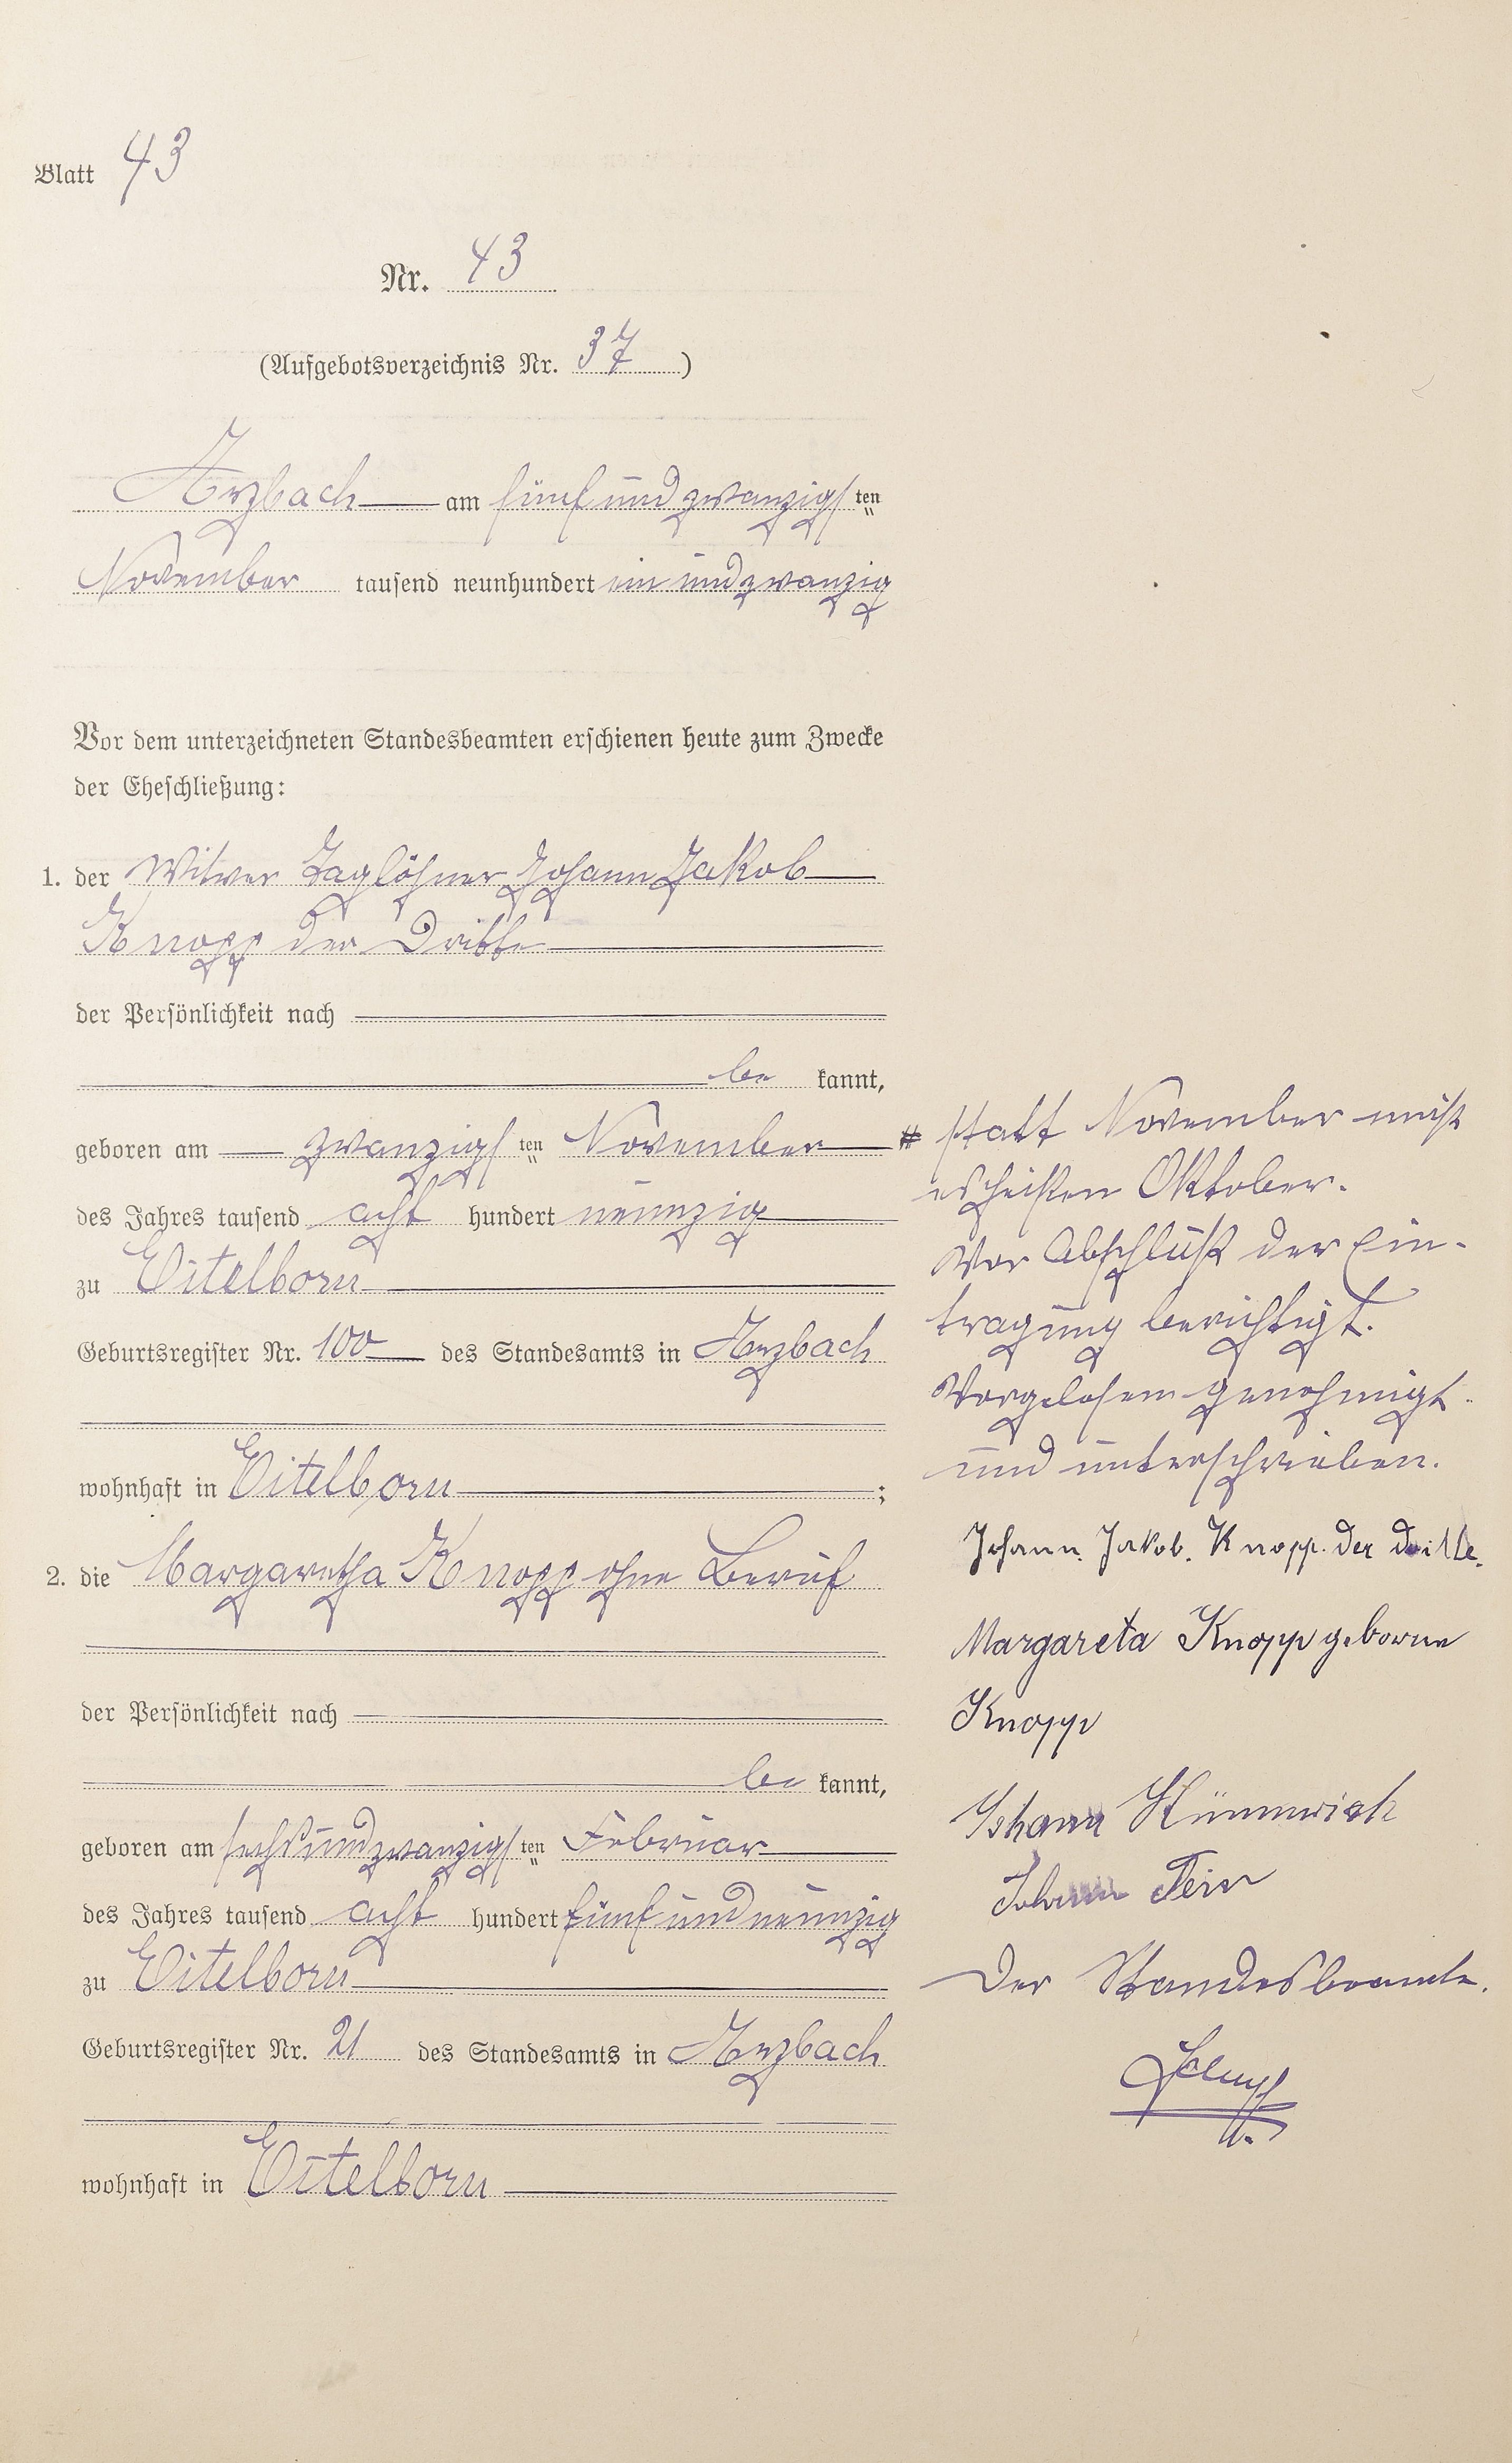 Blatt 43
Nr. 43
(Aufgebotsverzeichnis Nr. 37)
Arzbach am fünfundzwanzigsten
November tausend neunhundert einundzwanzig
Vor dem unterzeichneten Standesbeamten erschienen heute zum Zwecke
der Eheschließung:
1. der Witwer Taglöhner Johann Jakob
Knopp der Dritte
der Persönlichkeit nach
be kannt,
geboren am zwanzigsten November #
des Jahres tausend acht hundert neunzig
zu Eitelborn
Geburtsregister Nr. 100 des Standesamts in Arzbach
wohnhaft in Eitelborn;
2. die Margaretha Knopp ohne Beruf
der Persönlichkeit nach
be kannt,
geboren am sechsundzwanzigsten Februar
des Jahres tausend acht hundert fünfundneunzig
zu Eitelborn
Geburtsregister Nr. 21 des Standesamts in Arzbach
wohnhaft in Eitelborn
statt November muß
es heißen Oktober.
Vor Abschluß der Ein-
tragung berichtigt.
Vorgelesen genehmigt
und unterschrieben.
Johann. Jakob. Knopp. der dritte.
Margareta Knopp geborne
Knopp
Johann
Johann
Der Standesbeamte.